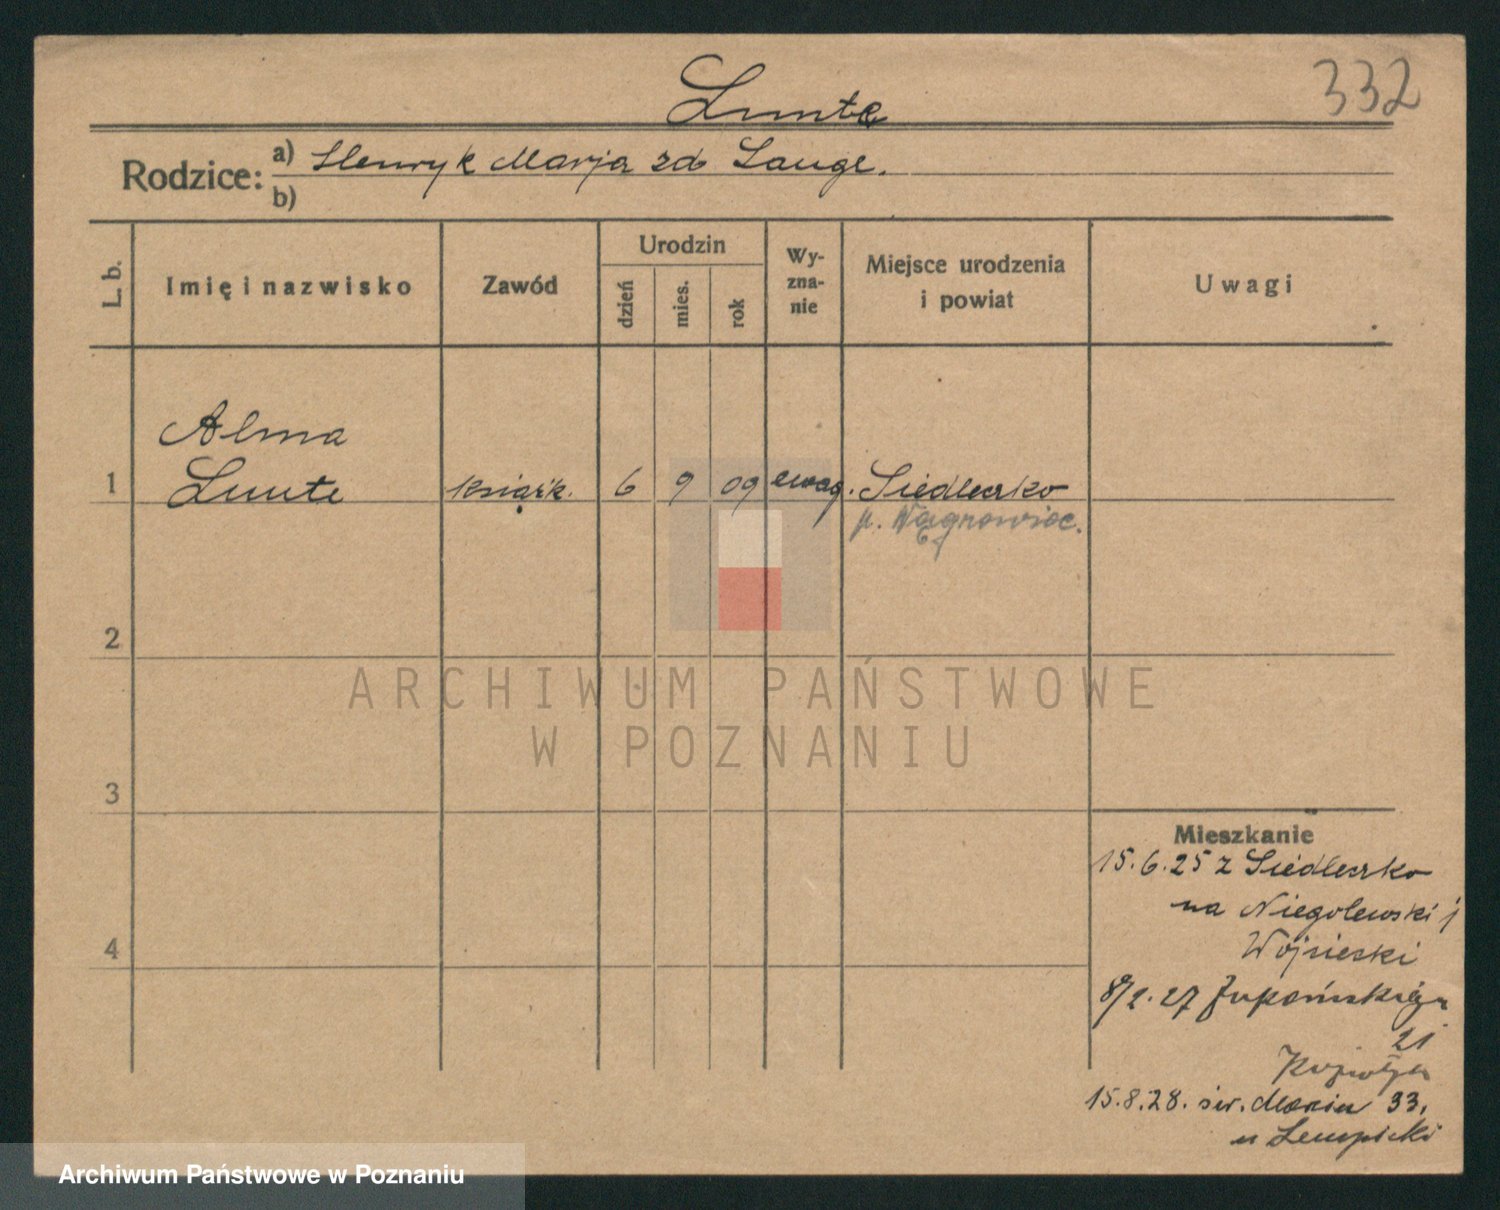 332
Lunte
Rodzice: a) Henryk Marja zd Lange.
b)
L. b.
Imię i nazwisko
Zawód
Urodzin
dzień
mies.
rok
Wy-
zna-
nie
Miejsce urodzenia
i powiat
Uwagi
Alma
1 Lunte książk. 6 9 09 ewag. Siedleczko
p. Wągrowiec.
2
3
4
Mieszkanie
15.6.25 z Siedleczko
na Niegolewski j
8/2.27
21
15.8.28. św. Marcin 33.
u Lempicki
ARCHIWUM PAŃSTWOWE
W POZNANIU
Archiwum Państwowe w Poznaniu